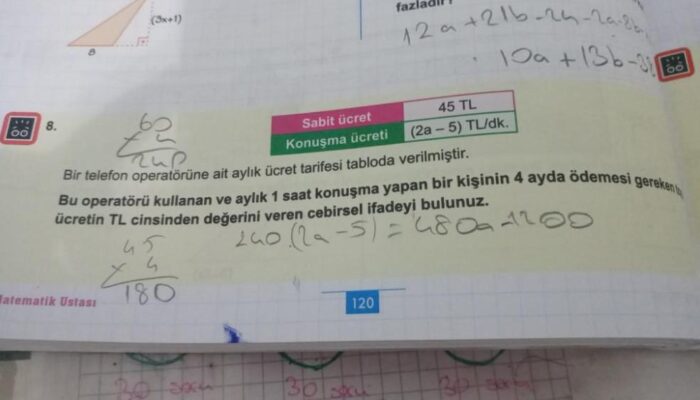 (3x+1)
fazladır?
12a + 21b - 2a - 2a - 8b
10a + 13b -
8.
60
x 4
240
Sabit ücret 45 TL
Konuşma ücreti (2a – 5) TL/dk.
Bir telefon operatörüne ait aylık ücret tarifesi tabloda verilmiştir.
Bu operatörü kullanan ve aylık 1 saat konuşma yapan bir kişinin 4 ayda ödemesi gereken
ücretin TL cinsinden değerini veren cebirsel ifadeyi bulunuz.
240.(2a-5) = 480a-1200
45
x 4
180
Matematik Ustası
120
30 30 30